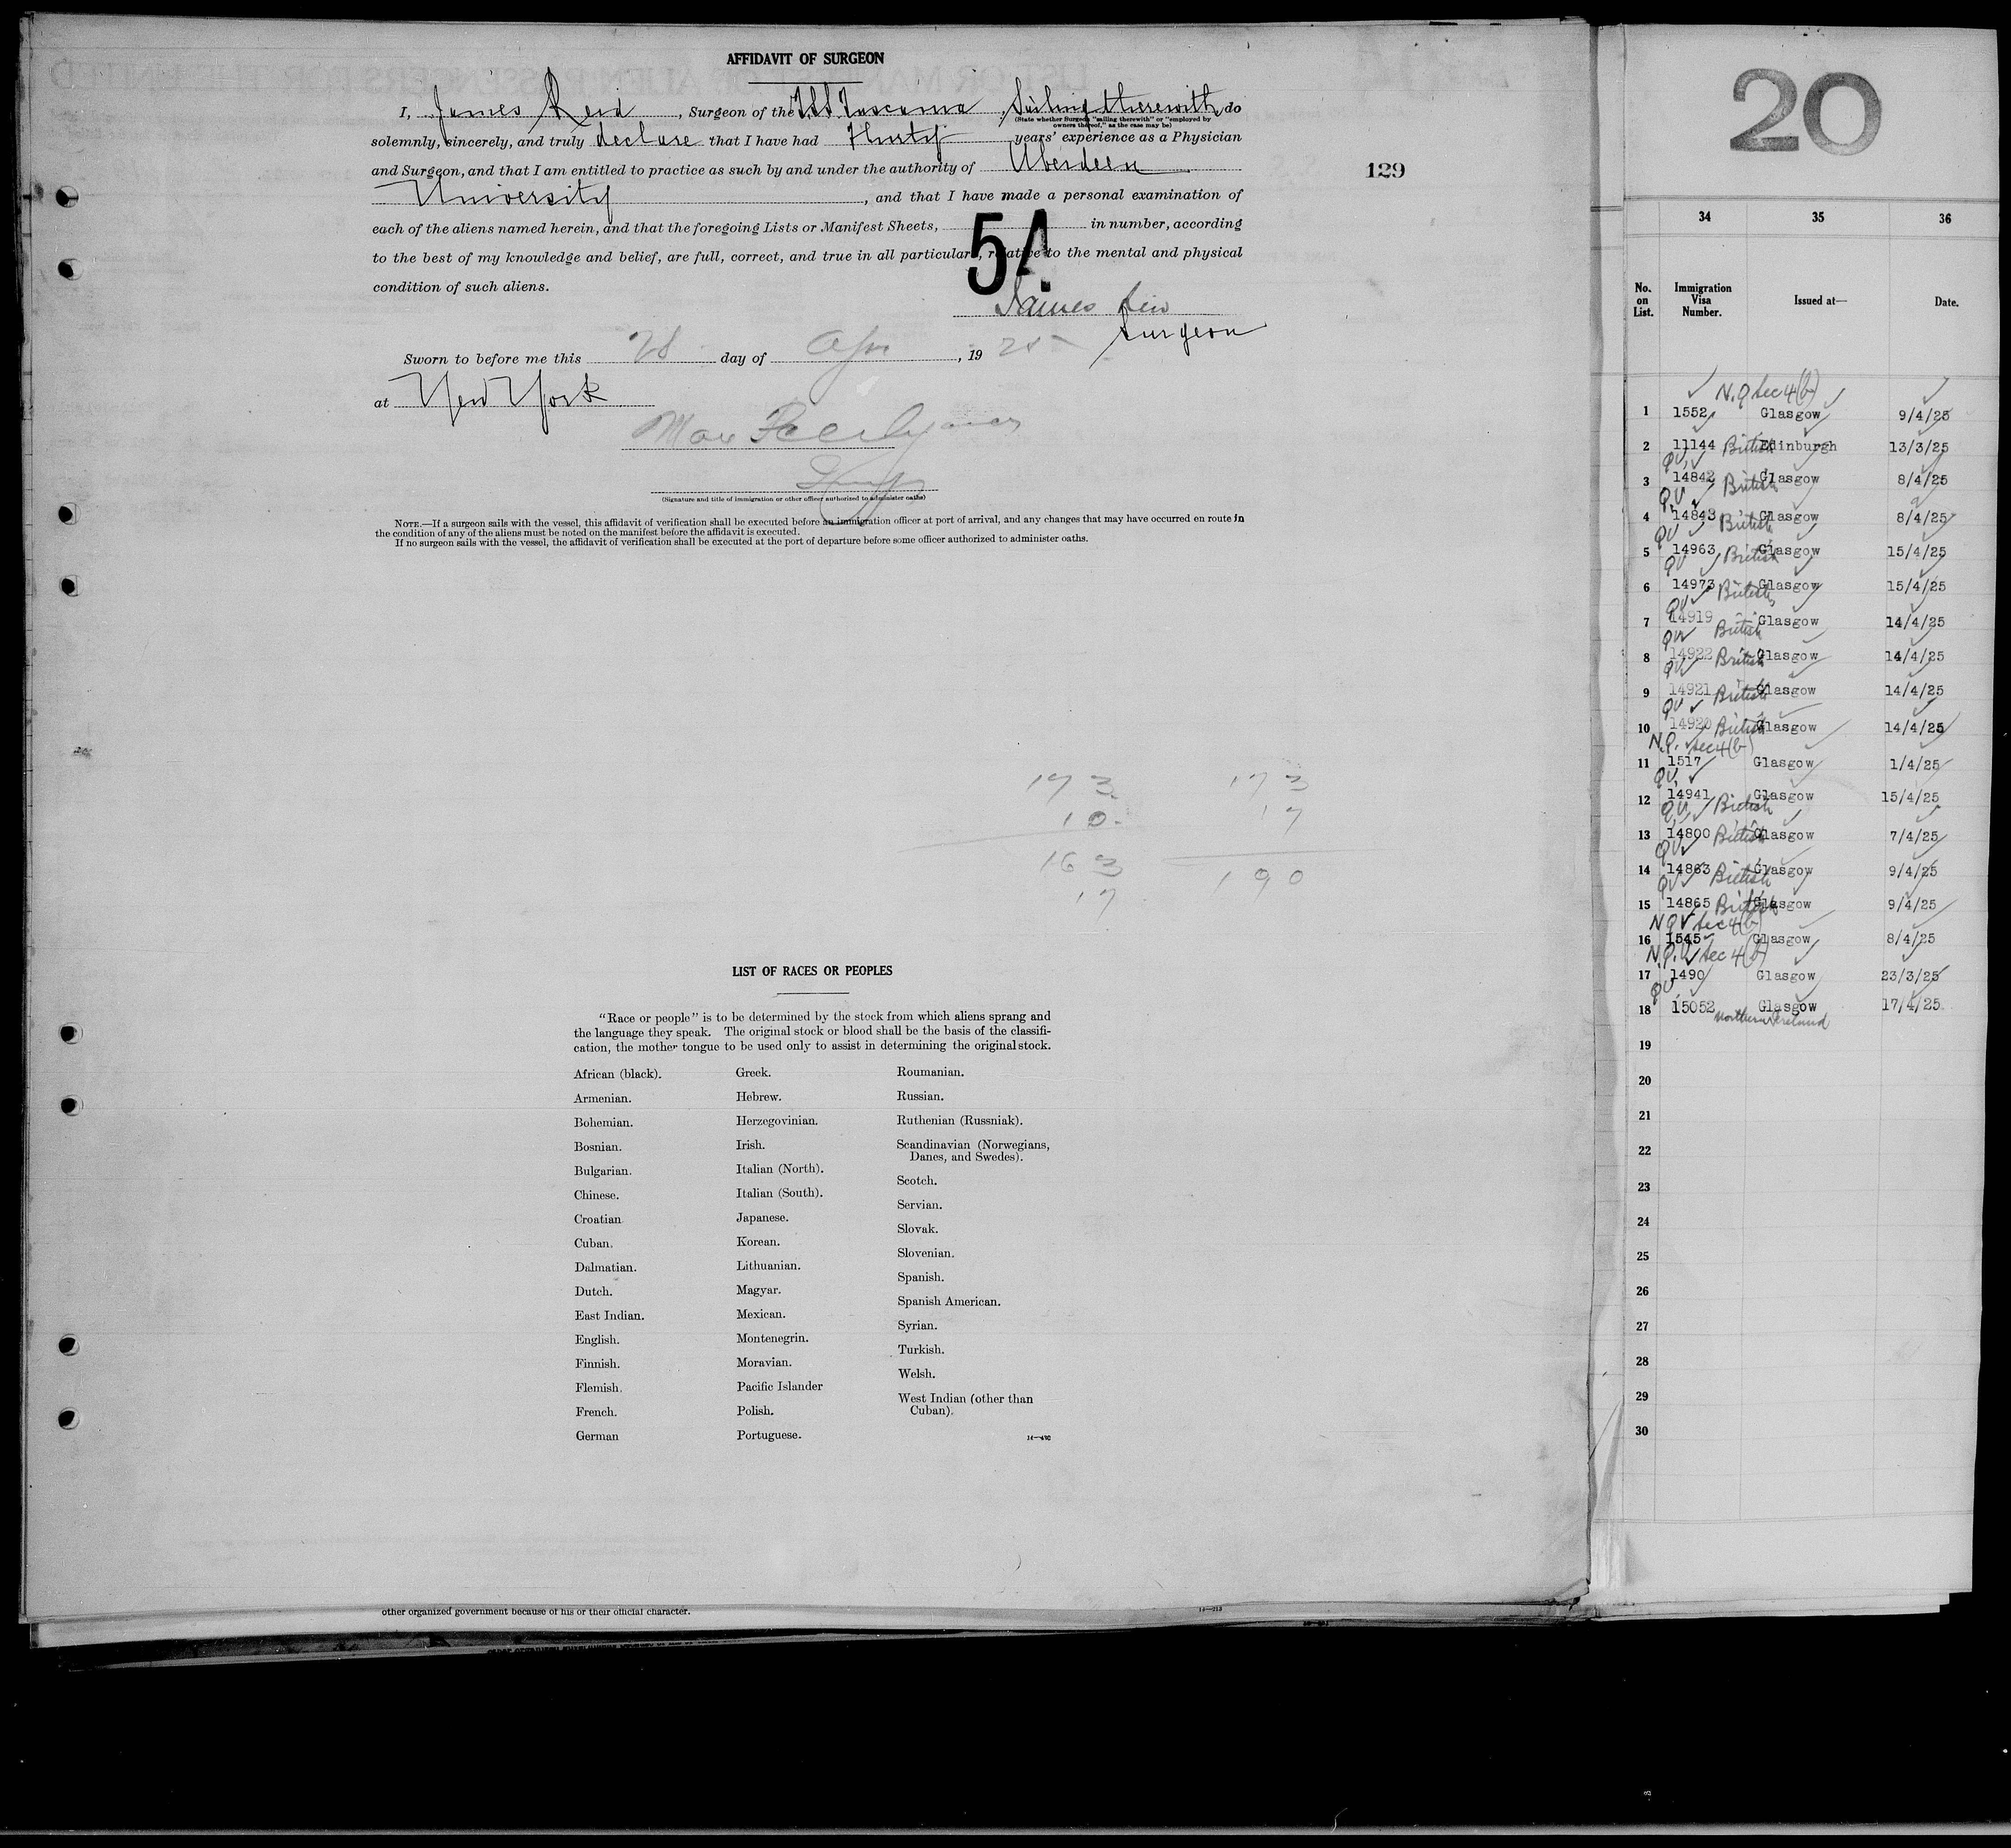 AFFIDAVIT OF SURGEON
I, James Reid, Surgeon of the T.S.S. Tuscania, Sailing therewith, do
(State whether Surgeon "sailing therewith" or "employed by
owners thereof," as the case may be)
solemnly, sincerely, and truly declare that I have had Thirty years' experience as a Physician
and Surgeon, and that I am entitled to practice as such by and under the authority of Aberdeen
University, and that I have made a personal examination of
each of the aliens named herein, and that the foregoing Lists or Manifest Sheets, in number, according
to the best of my knowledge and belief, are full, correct, and true in all particulars, relative to the mental and physical
condition of such aliens.
54
James Reid
Surgeon
Sworn to before me this 28 day of Apr, 1925
at New York
(Signature and title of immigration or other officer authorized to administer oaths)
NOTE.—If a surgeon sails with the vessel, this affidavit of verification shall be executed before an immigration officer at port of arrival, and any changes that may have occurred en route in
the condition of any of the aliens must be noted on the manifest before the affidavit is executed.
If no surgeon sails with the vessel, the affidavit of verification shall be executed at the port of departure before some officer authorized to administer oaths.
129
173 173
10 17
163 190
17
LIST OF RACES OR PEOPLES
"Race or people" is to be determined by the stock from which aliens sprang and
the language they speak. The original stock or blood shall be the basis of the classifi-
cation, the mother tongue to be used only to assist in determining the original stock.
African (black).
Armenian.
Bohemian.
Bosnian.
Bulgarian.
Chinese.
Croatian
Cuban.
Dalmatian.
Dutch.
East Indian.
English.
Finnish.
Flemish.
French.
German
Greek.
Hebrew.
Herzegovinian.
Irish.
Italian (North).
Italian (South).
Japanese.
Korean.
Lithuanian.
Magyar.
Mexican.
Montenegrin.
Moravian.
Pacific Islander
Polish.
Portuguese.
Roumanian.
Russian.
Ruthenian (Russniak).
Scandinavian (Norwegians,
Danes, and Swedes).
Scotch.
Servian.
Slovak.
Slovenian.
Spanish.
Spanish American.
Syrian.
Turkish.
Welsh.
West Indian (other than
Cuban).
other organized government because of his or their official character.
20
34 35 36
No. on List. Immigration Visa Number. Issued at— Date.
N.Q sec 4(b)
1 1552 Glasgow 9/4/25
2 11144 British Edinburgh 13/3/25
QV
3 14842 British Glasgow 8/4/25
QV
4 14843 British Glasgow 8/4/25
QV
5 14963 British Glasgow 15/4/25
QV
6 14973 British Glasgow 15/4/25
QV
7 14919 British Glasgow 14/4/25
QV
8 14922 British Glasgow 14/4/25
QV
9 14921 British Glasgow 14/4/25
QV
10 14920 British Glasgow 14/4/25
N.Q. sec 4(b)
11 1517 Glasgow 1/4/25
QV
12 14941 British Glasgow 15/4/25
QV
13 14800 British Glasgow 7/4/25
QV
14 14863 British Glasgow 9/4/25
QV
15 14865 British Glasgow 9/4/25
NQV sec 4(b)
16 1545 Glasgow 8/4/25
N.Q.V sec 4(b)
17 1490 Glasgow 23/3/25
QV
18 15052 Glasgow 17/4/25
Northern Ireland
19
20
21
22
23
24
25
26
27
28
29
30